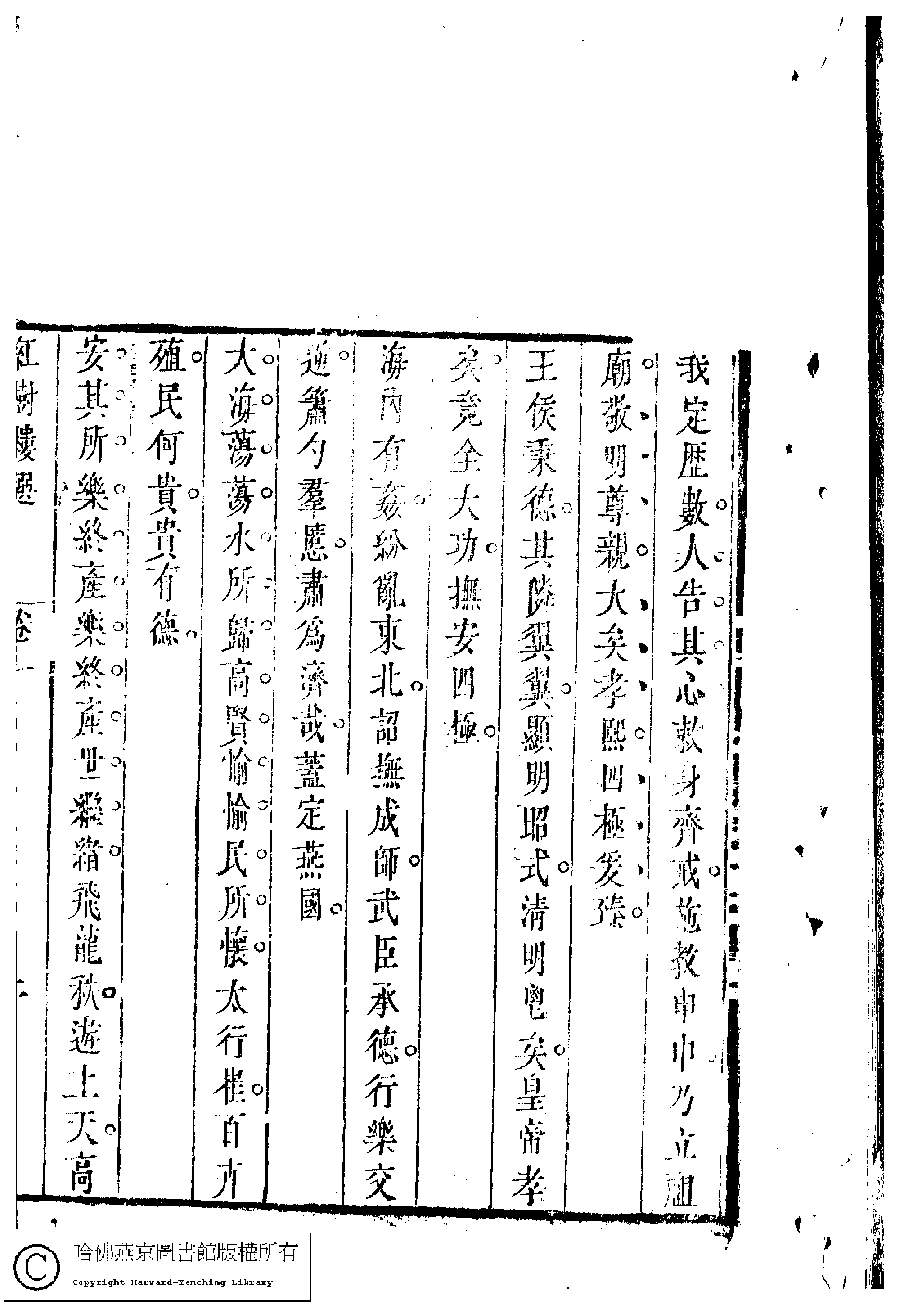 我定歷數人告其心敕身齊戒施教申申乃立祖
廟敬明尊親大矣孝熙四極爰臻
王侯秉德其隣翼翼顯明昭式清明鬯矣皇帝孝
矣竟全大功撫安四極
海內有姦紛亂東北詔撫成師武臣承德行樂交
逆簫勺羣慝肅爲濟哉蓋定燕國
大海蕩蕩水所歸高賢愉愉民所懷太行崔百卉
殖民何貴貴有德
安其所樂終產樂終產世繼緒飛龍秋遊上天高
紅樹樓選 卷一
哈佛燕京圖書館版權所有
Copyright Harvard-Yenching Library